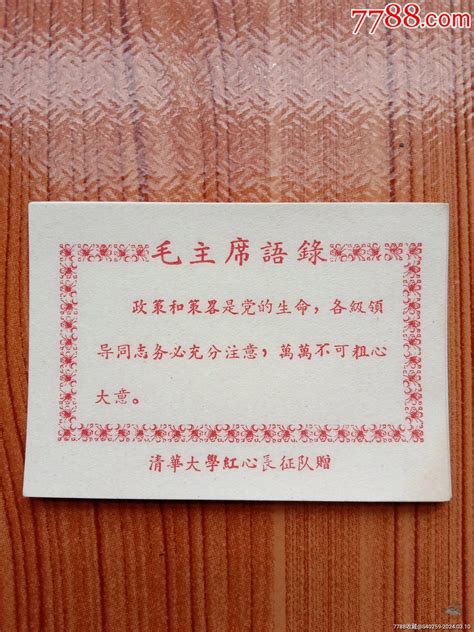 7788.com
毛主席語錄
政策和策畧是党的生命，各級領
导同志务必充分注意，萬萬不可粗心
大意。
清華大學紅心長征队贈
7788收藏@S40259-2024.03.10